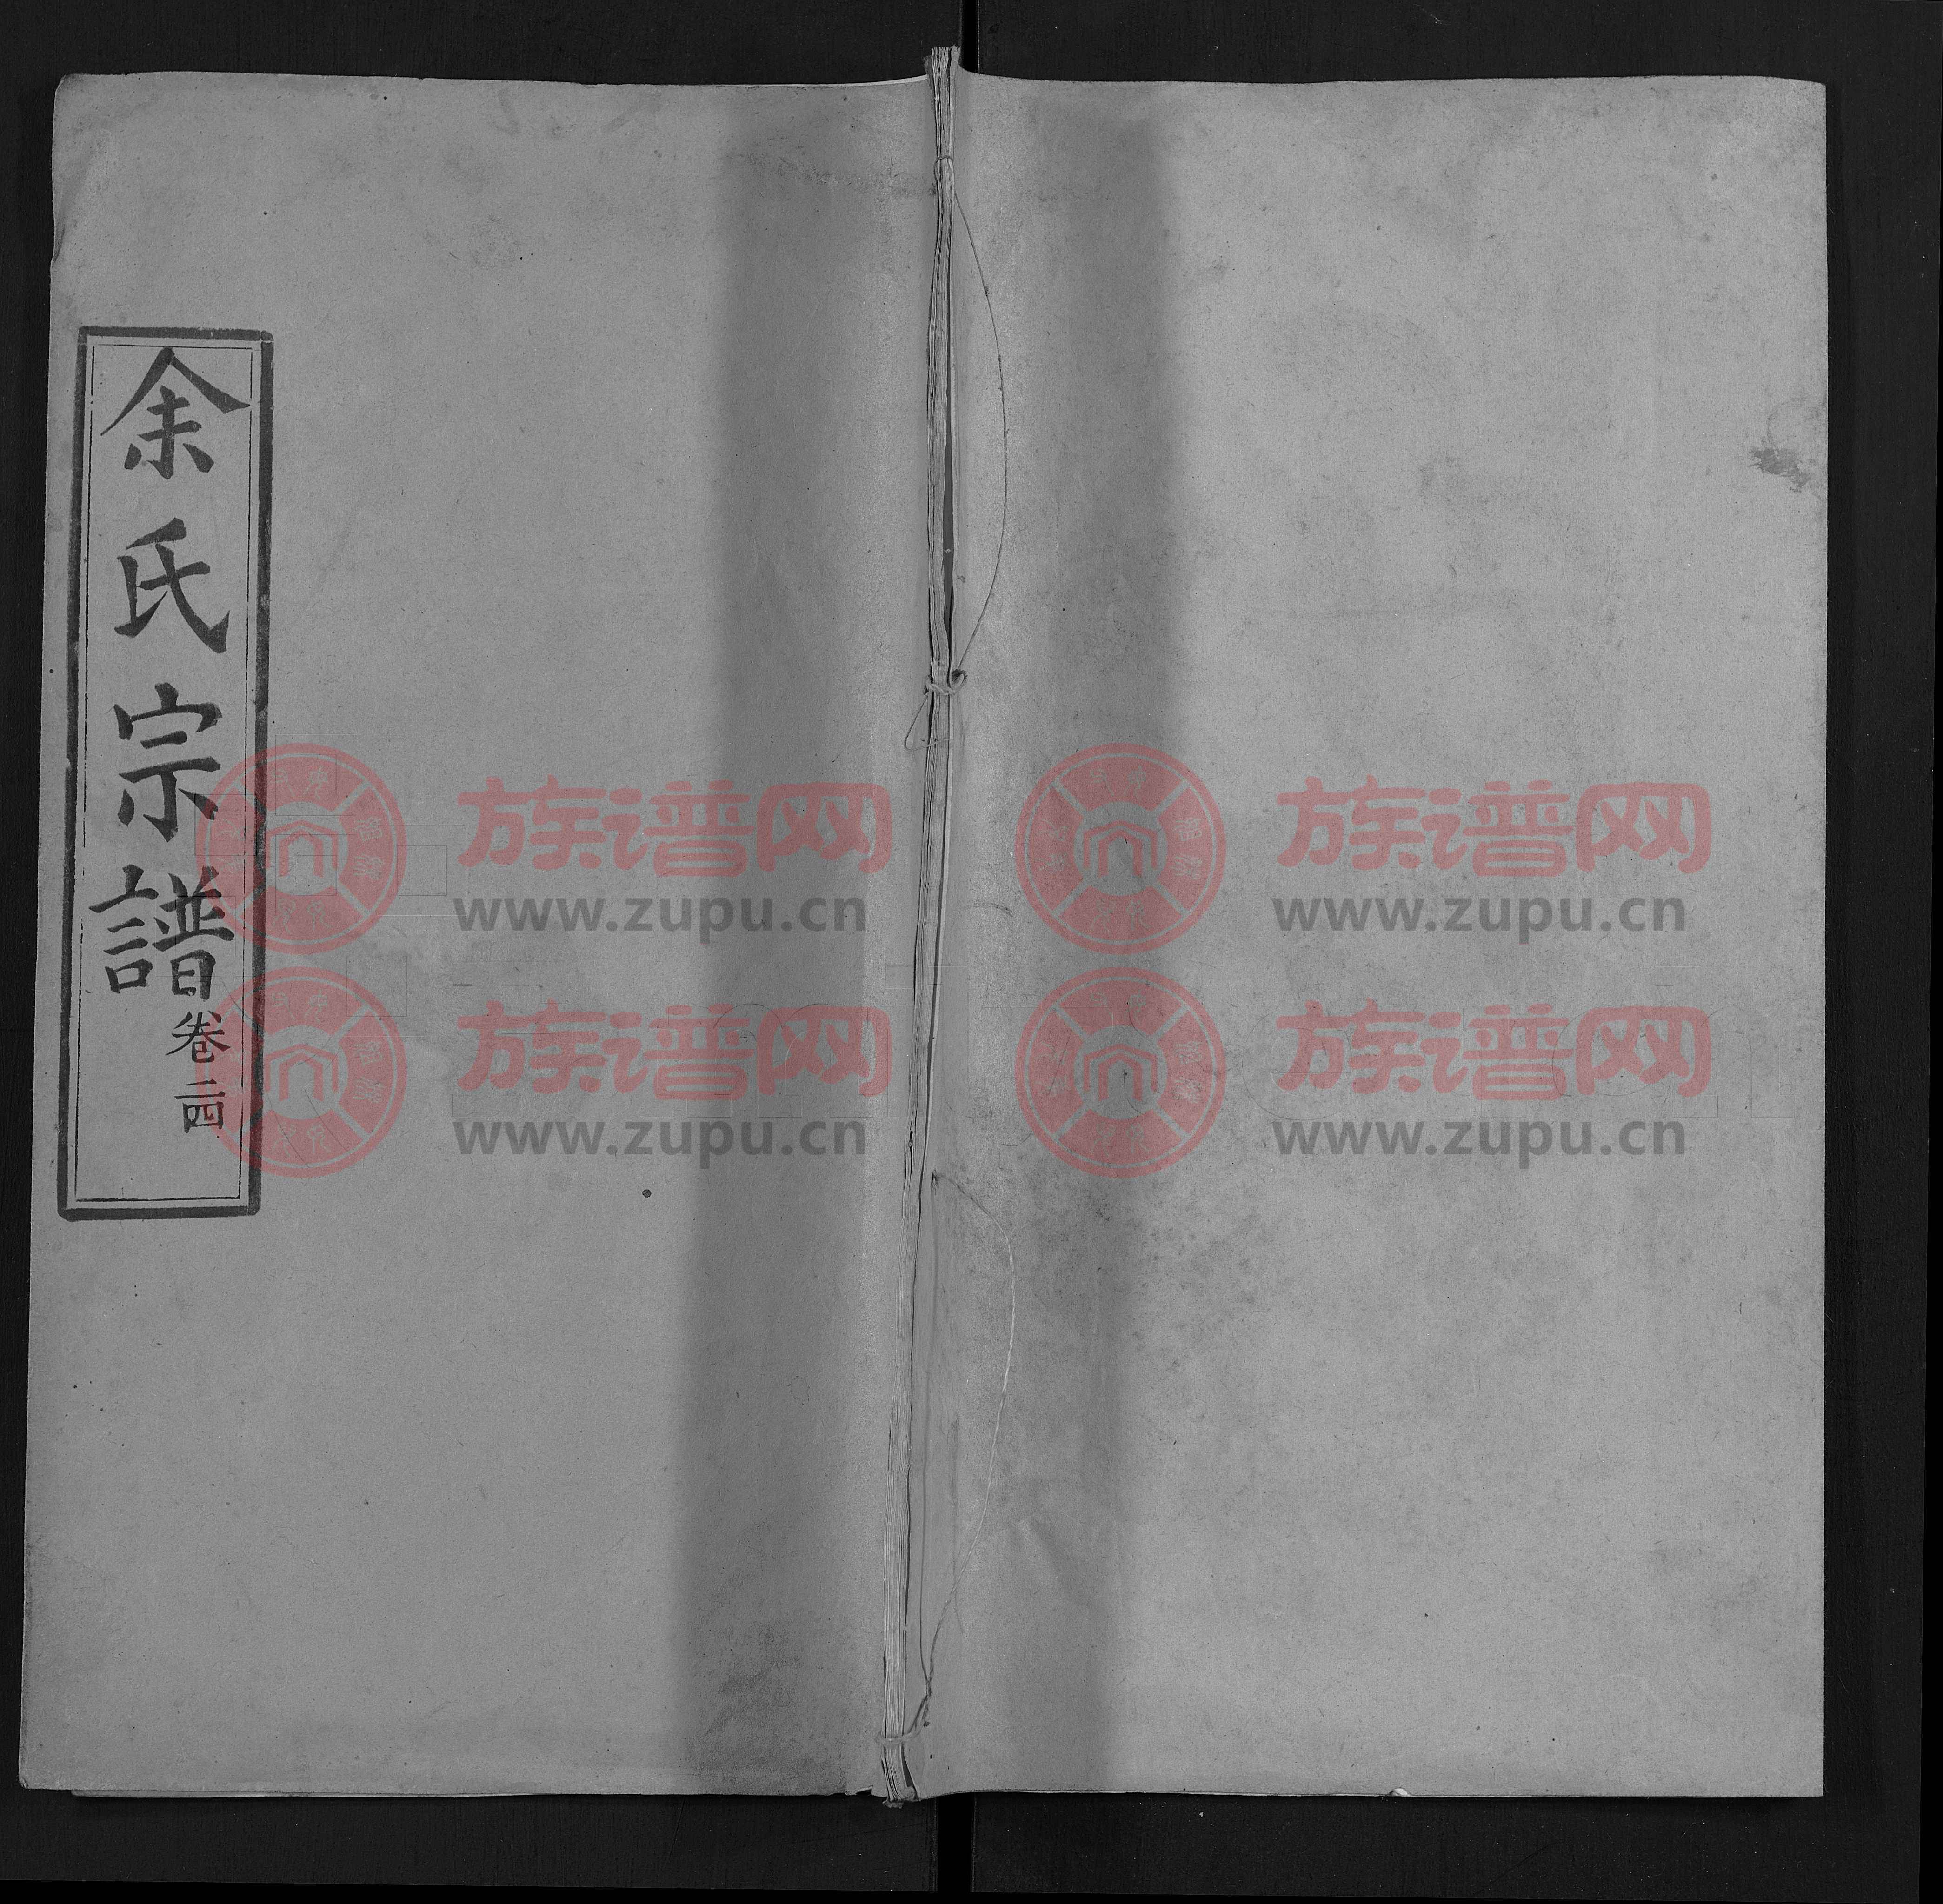 余氏宗譜
卷二四
族谱网
www.zupu.cn
族谱网
www.zupu.cn
族谱网
www.zupu.cn
族谱网
www.zupu.cn